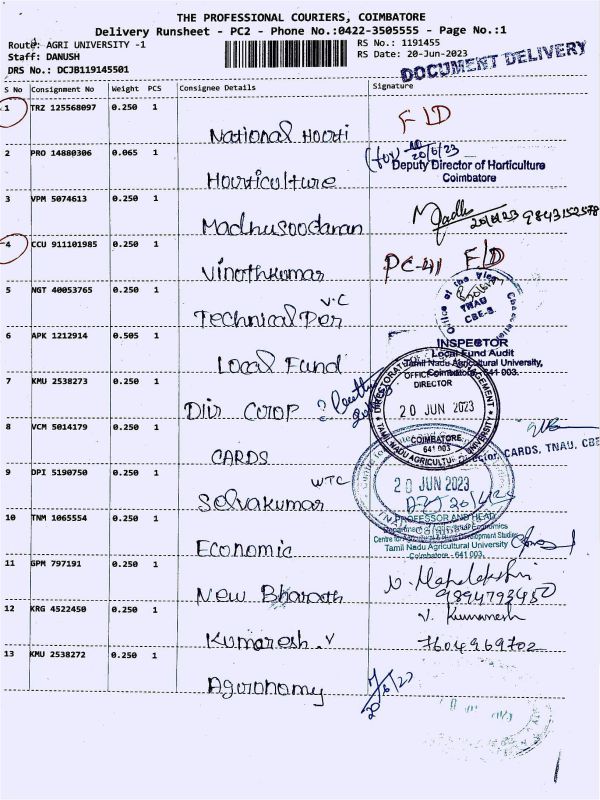 THE PROFESSIONAL COURIERS, COIMBATORE
Delivery Runsheet - PC2 - Phone No.:0422-3505555 - Page No.:1
Route: AGRI UNIVERSITY -1
RS No.: 1191455
Staff: DANUSH
RS Date: 20-Jun-2023
DRS No.: DCJB119145501
DOCUMENT DELIVERY
S No Consignment No Weight PCS Consignee Details Signature
1 TRZ 125568097 0.250 1
National Horti
F/D
2 PRO 14880306 0.065 1
Horticulture
(for) 20/6/23
Deputy Director of Horticulture
Coimbatore
3 VPM 5074613 0.250 1
Madhusoodanan
Madhu
4 CCU 911101985 0.250 1
Vinothkumar
PC-41 F/D
5 NGT 40053765 0.250 1
V.C
Technical Per
Office of the Vice Chancellor
TNAU
CBE-3
6 APK 1212914 0.505 1
Local Fund
INSPECTOR
Local Fund Audit
Tamil Nadu Agricultural University,
Coimbatore - 641 003.
7 KMU 2538273 0.250 1
Dir COOP
DIRECTOR
20 JUN 2023
COIMBATORE
641 003
TAMIL NADU AGRICULTURAL UNIVERSITY
8 VCM 5014179 0.250 1
CARDS
Director, CARDS, TNAU, CBE
9 DPI 5190750 0.250 1
WTC
Selvakumar
20 JUN 2023
10 TNM 1065554 0.250 1
Economic
PROFESSOR AND HEAD
Department of Agricultural Economics
Centre for Agricultural & Rural Development Studies
Tamil Nadu Agricultural University
Coimbatore - 641 003.
11 GPM 797191 0.250 1
New Bharath
9894793450
12 KRG 4522450 0.250 1
Kumaresh.V
V. Kumaresh
7604969702
13 KMU 2538272 0.250 1
Agronomy